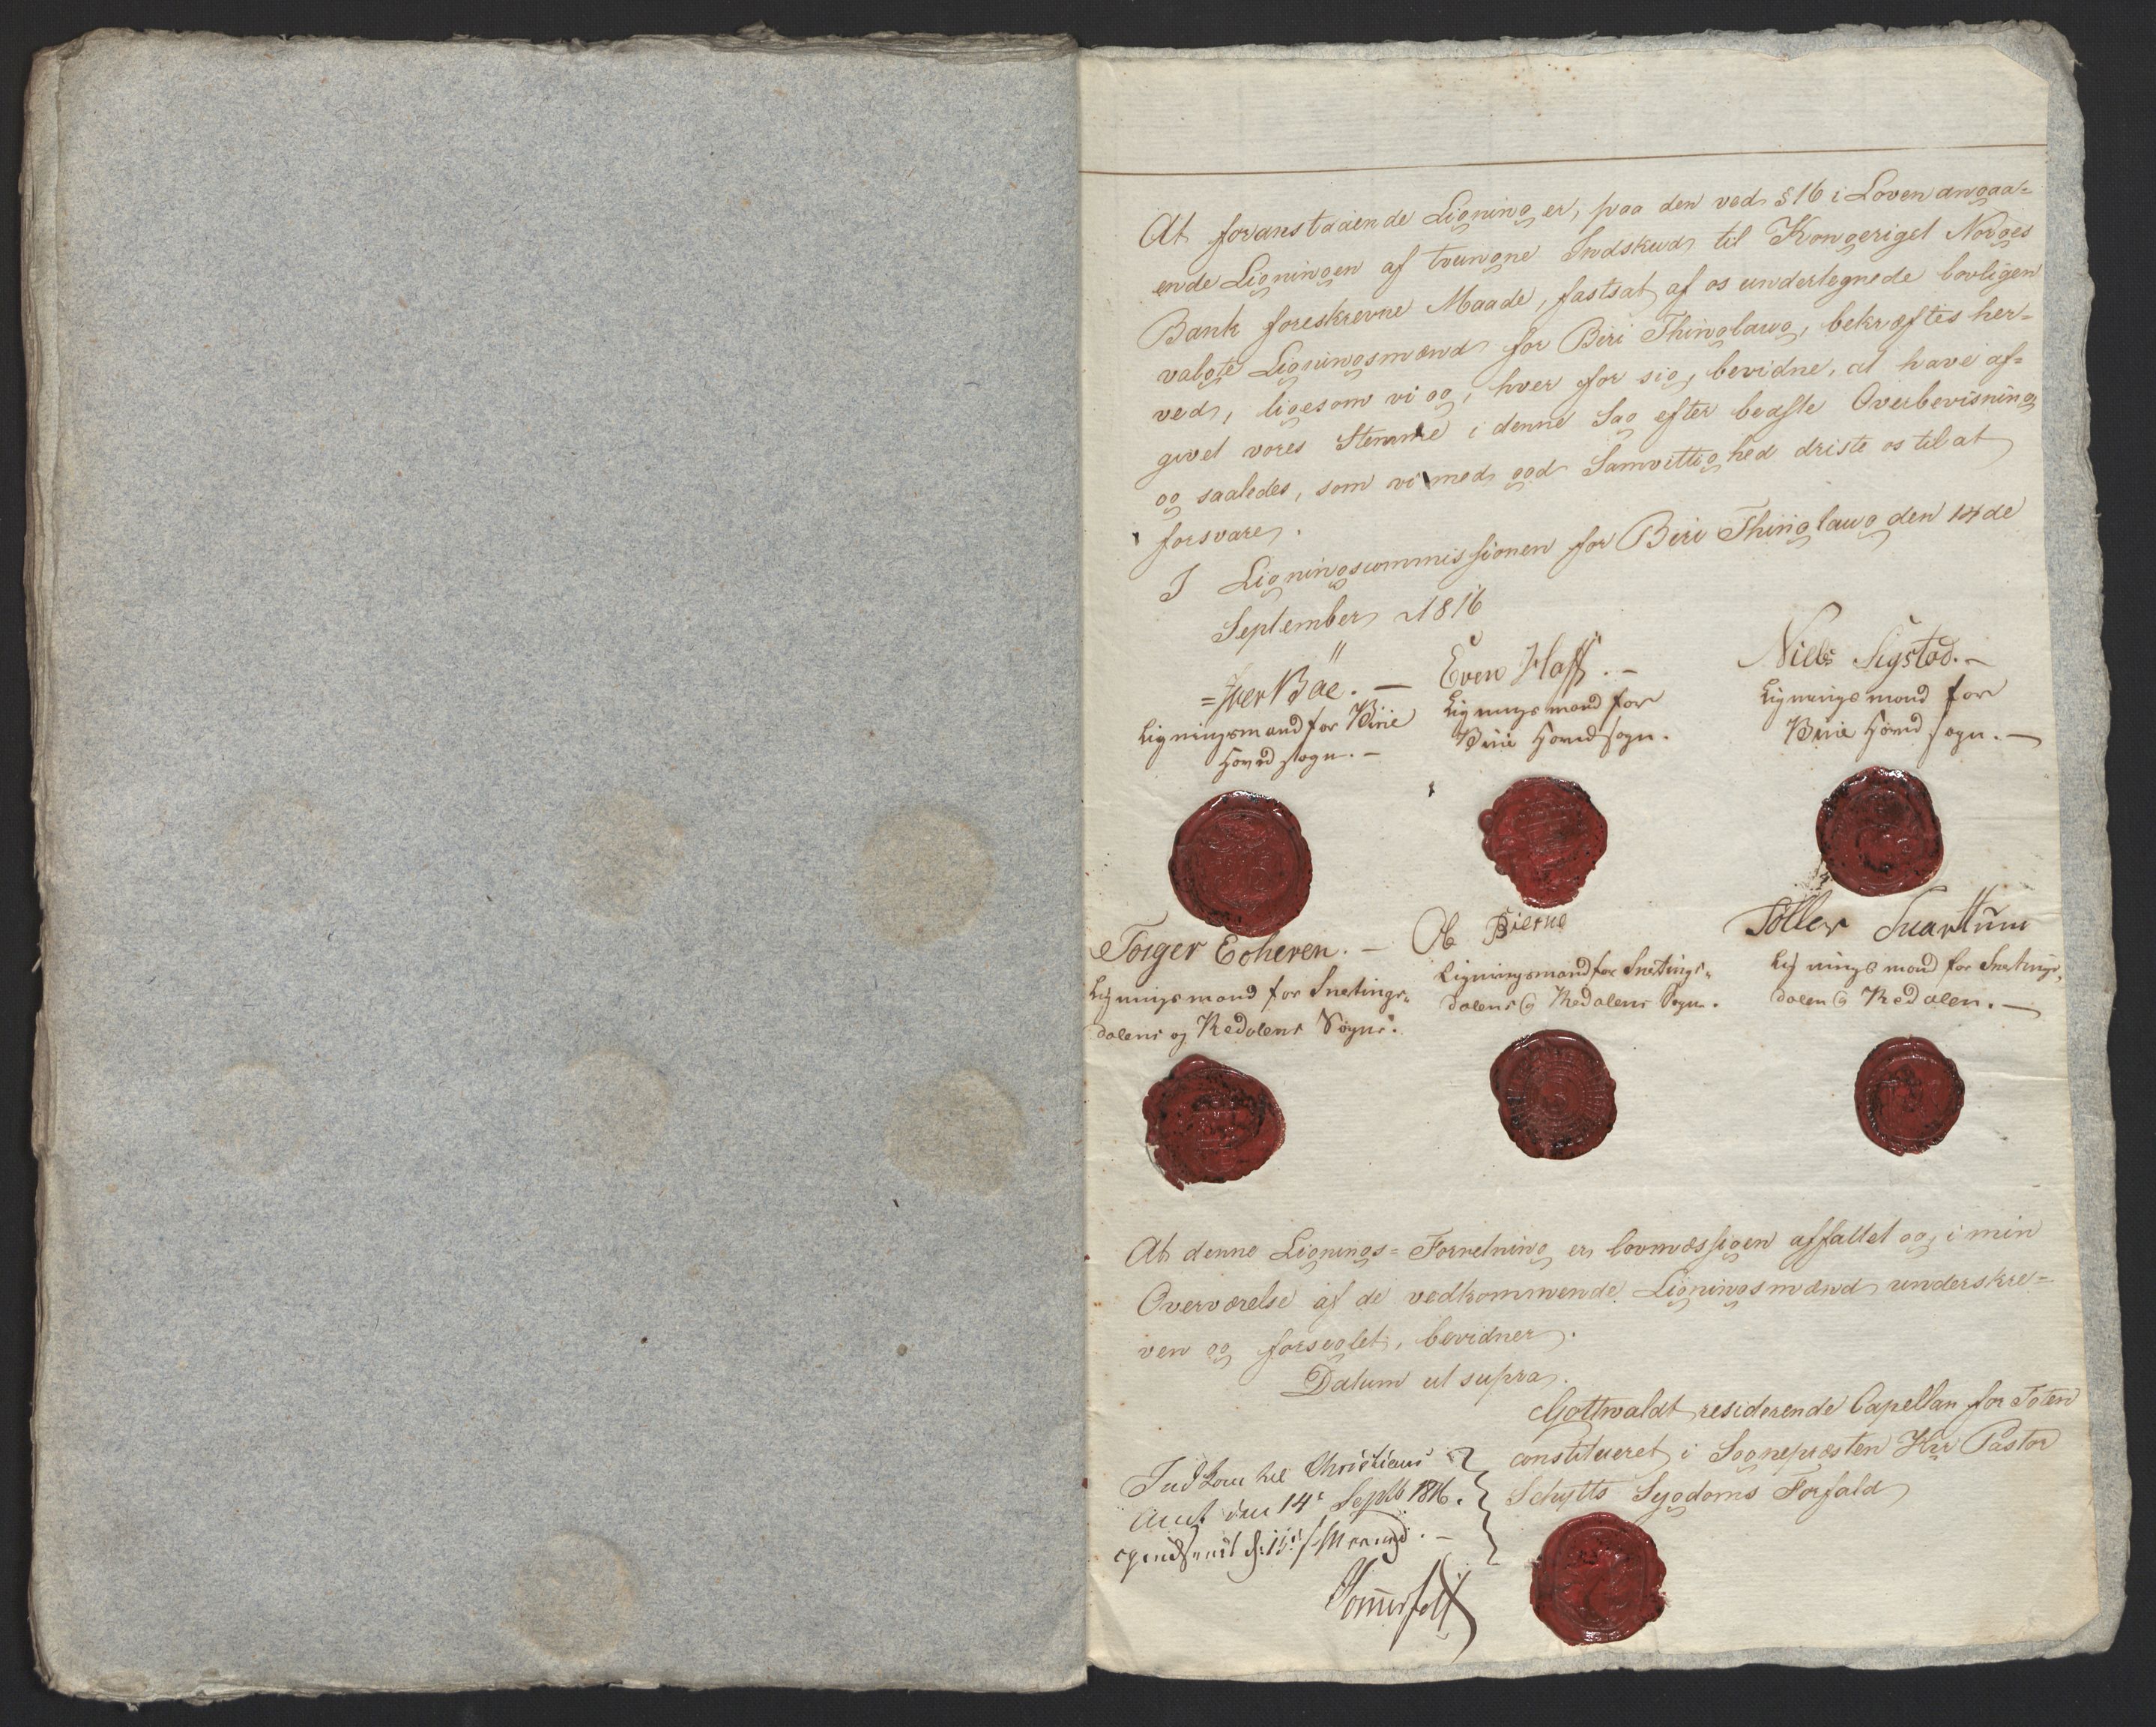 At foranstaaende Ligning er, paa den ved § 16 i Loven angaa=
ende Ligningen af tvungne Indskud til Kongeriget Norges
Bank foreskrevne Maade, fastsat af os undertegnede lovligen
valgte Ligningsmænd for Biri Thinglaug, bekræftes her=
ved, ligesom vi og, hver for sig, bevidne, at have af=
givet vores Stemme i denne Sag efter bedste Overbevisning
og saaledes, som vi med god Samvittighed driste os til at
forsvare.
I Ligningscommissionen for Biri Thinglaug den 14de
September 1816
=Iver Bäe. —
Ligningsmand for Birie
Hovedsogn. —
Even Hoff. —
Ligningsmand for
Birie Hovedsogn.
Niels Sigstad. —
Ligningsmand for
Birie Hovedsogn. —
Torger Echeren. —
Ligningsmand for Snetings=
dalens og Redalens Sogne.
Ole Bierne
Ligningsmand for Snetings=
dalens og Redalens Sogn.
Töller Svarttum
Ligningsmand for Snetings=
dalen og Redalen. —
At denne Lignings=Forretning er lovmæssigen affattet og i min
Overværelse af de vedkommende Ligningsmænd underskre=
ven og forseglet, bevidner.
Datum ut supra.
Gottwaldt residerende Capellan for Toten
constitueret i Sognepræsten Hr Pastor
Schytts Sygdoms Forfald
Indkom til Christians
Amt den 14de Septb 1816.
Sommerfelt